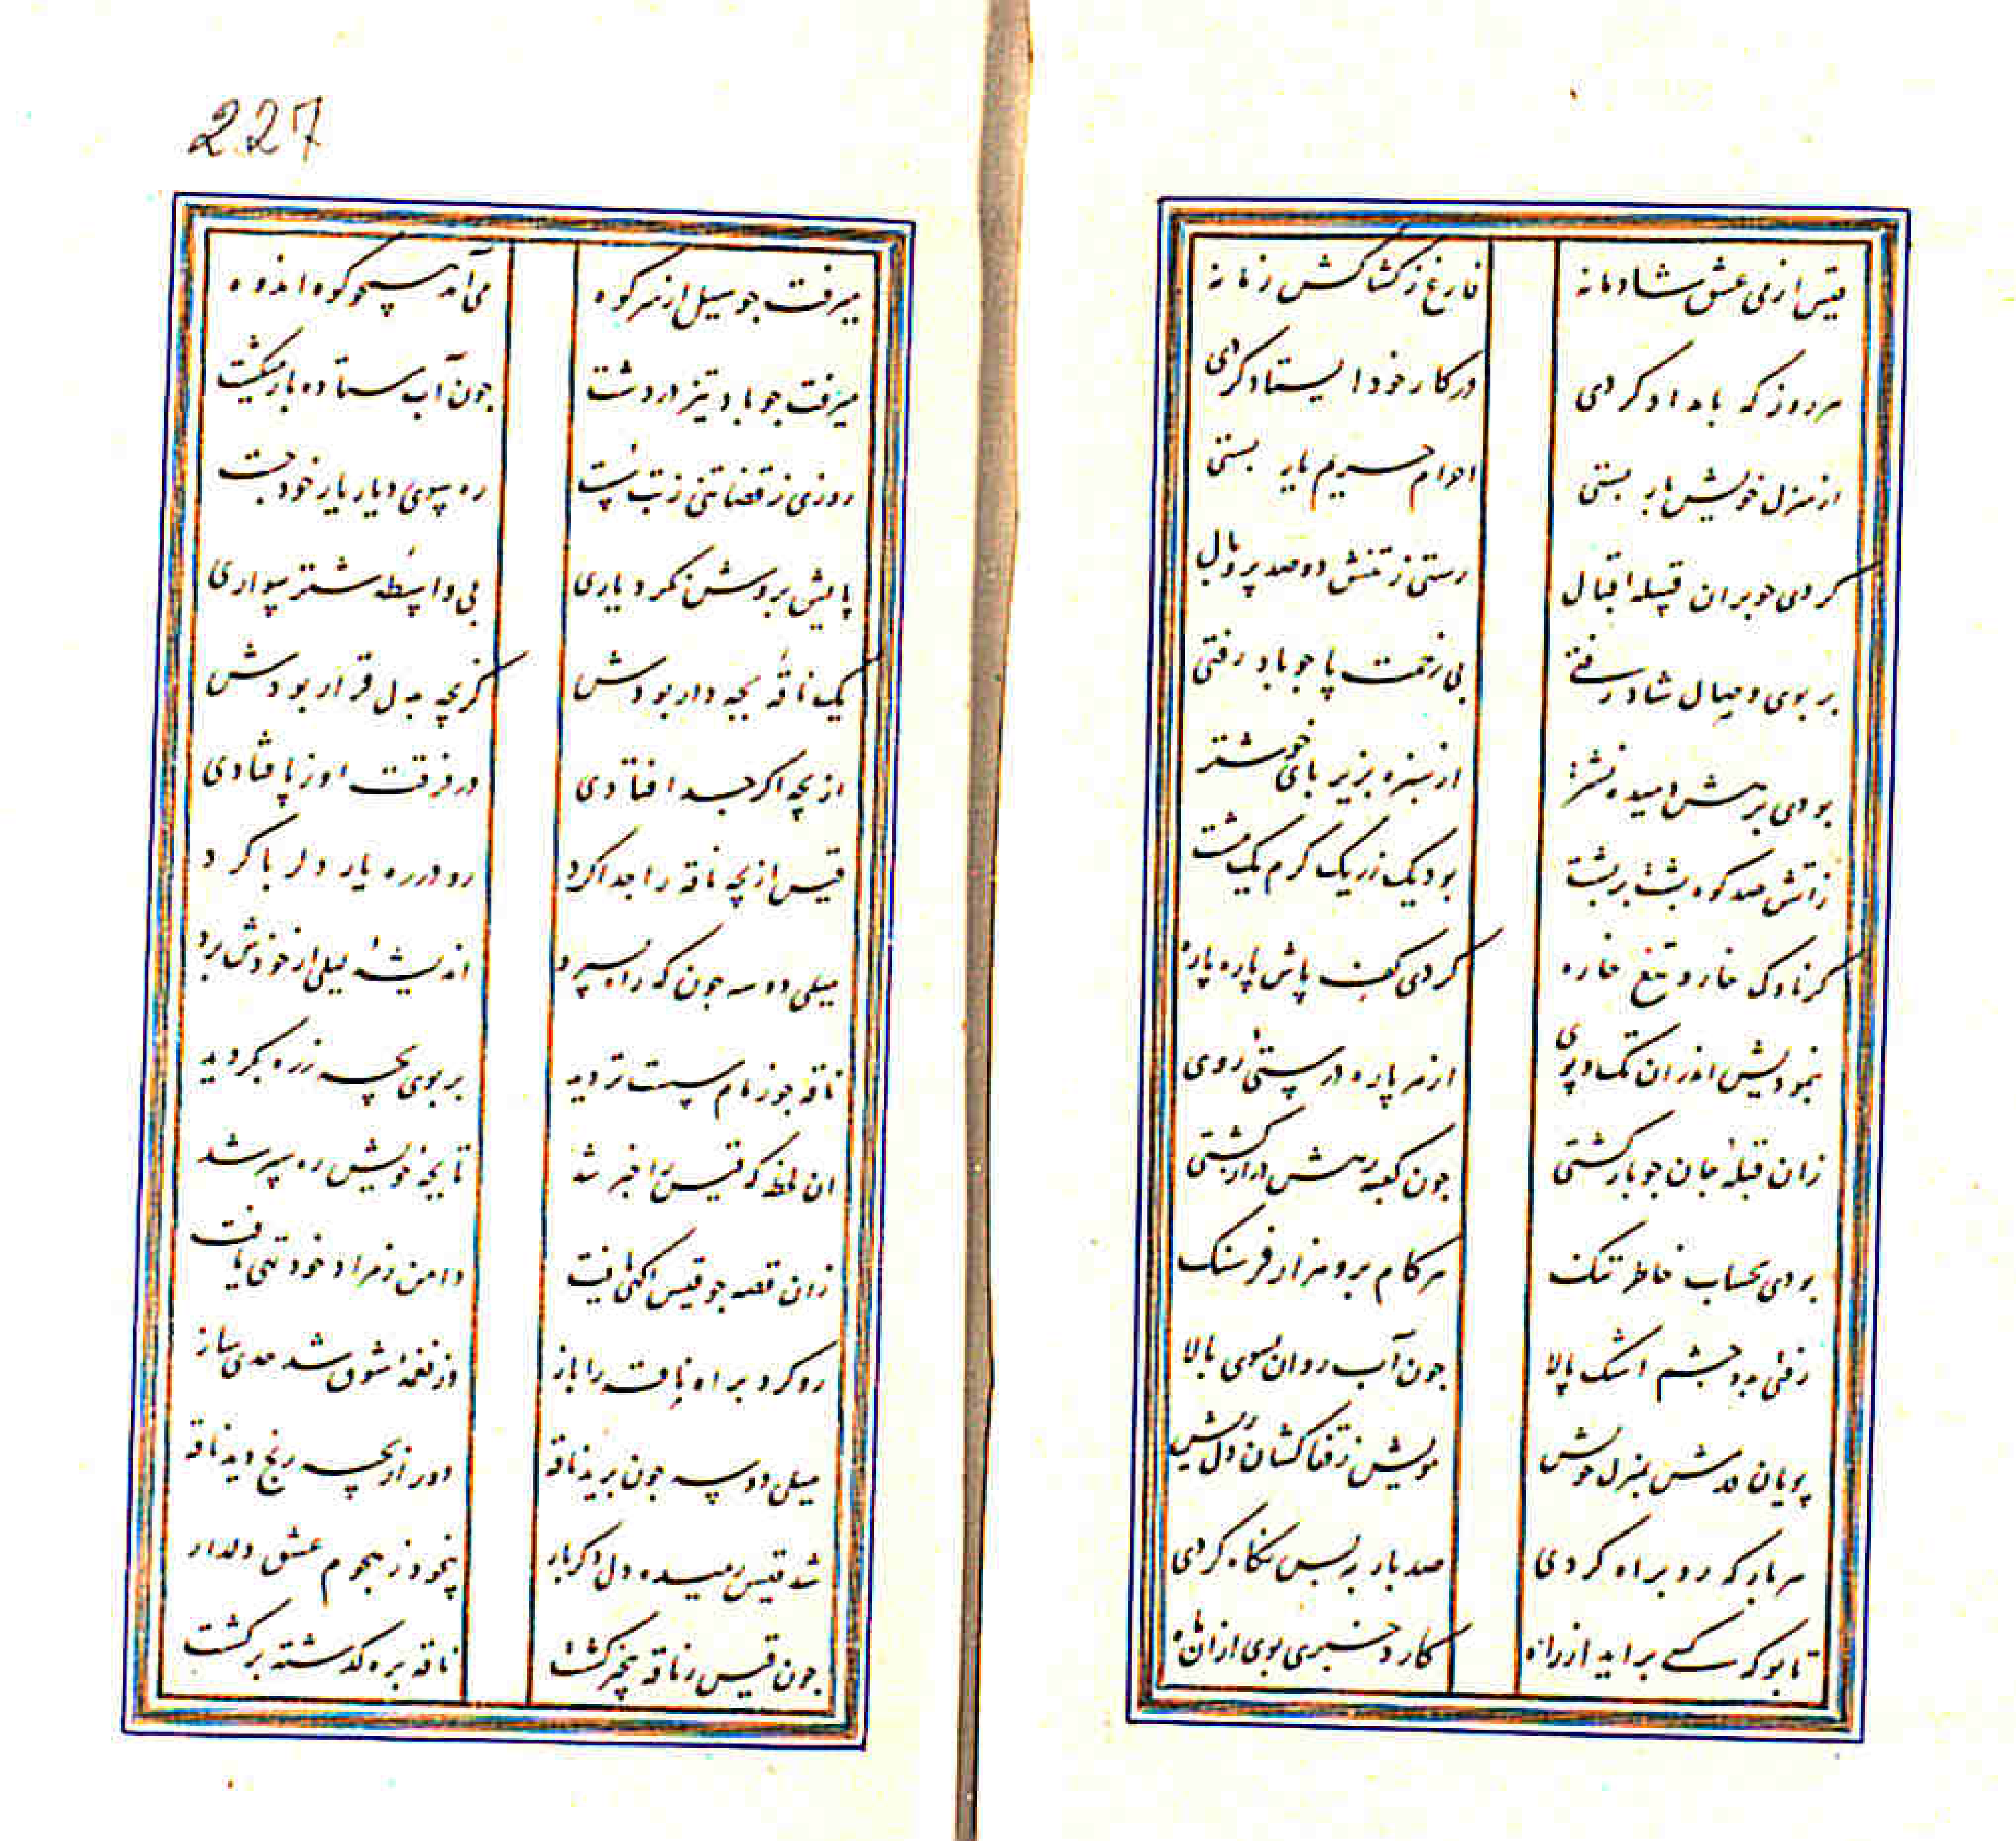 227
قیس از می عشق شادمانه فارغ ز کشاکش زمانه
هر روز که بامداد کردی در کار خود ایستاد کردی
از منزل خویش بار بستی احرام حریم یار بستی
کردی جو بران قبیله اقبال رستی ز تنش دو صد پر و بال
بر بوی وصال شاد رفتی بی زحمت پا جو باد رفتی
بودی برهش دمیده نشتر از سبزه بزیر پای خوشتر
ز آتش صد کوه پشت بر پشت بودیک ز ریک کرم یک مشت
کر ناوک خار و تیغ خاره کردی کف پاش پاره پاره
بنمودیش اندران تک و پوی از هر پاره درستئ روی
زان قبلهٔ جان جو بازکشتی جون کعبه رهش درازکشتی
بودی بحساب خاطر تنک هر کام برو هزار فرسنک
رفتی بدو چشم اشک پالا جون آب روان بسوی بالا
پویان قدمش بمنزل خویش مویش ز قفا کشان دل ریش
هر بار که رو براه کردی صد بار ز پس نکاه کردی
تا بو که کسی براید از راه کارد خبری بوی ازان ماه
میرفت جو سیل از سر کوه می آمد همچو کوه اندوه
میرفت جو باد تیز در دشت جون آب ستاده باز میکشت
روزی ز قضا تنی ز تب سست ره سوی دیار یار خود جست
پایش بروش نکرد یاری بی واسطهٔ شتر سواری
یک ناقهٔ بچه دار بودش کز بچه بدل قرار بودش
از بچه اکر جدا فتادی در فرقت او ز پا فتادی
قیس از بچه ناقه را جدا کرد رو در ره یار دلربا کرد
میلی دو سه جون که راه بسپرد اندیشهٔ لیلی از خودش برد
ناقه جو زمام سست تر دید بر بوی بچه ز ره بکردید
ان لحظه که قیس را خبر شد تا بچهٔ خویش ره سپر شد
زان قصه جو قیس اکهی یافت دامن ز مراد خود تهی یافت
رو کرد براه ناقه را باز وز نغمهٔ شوق شد حدی ساز
میلی دو سه جون برید ناقه دور از بچه رنج دید ناقه
شد قیس رمیده دل دکر بار بیخود ز هجوم عشق دلدار
جون قیس ز ناقه بیخبر کشت ناقه بره کذشته برکشت